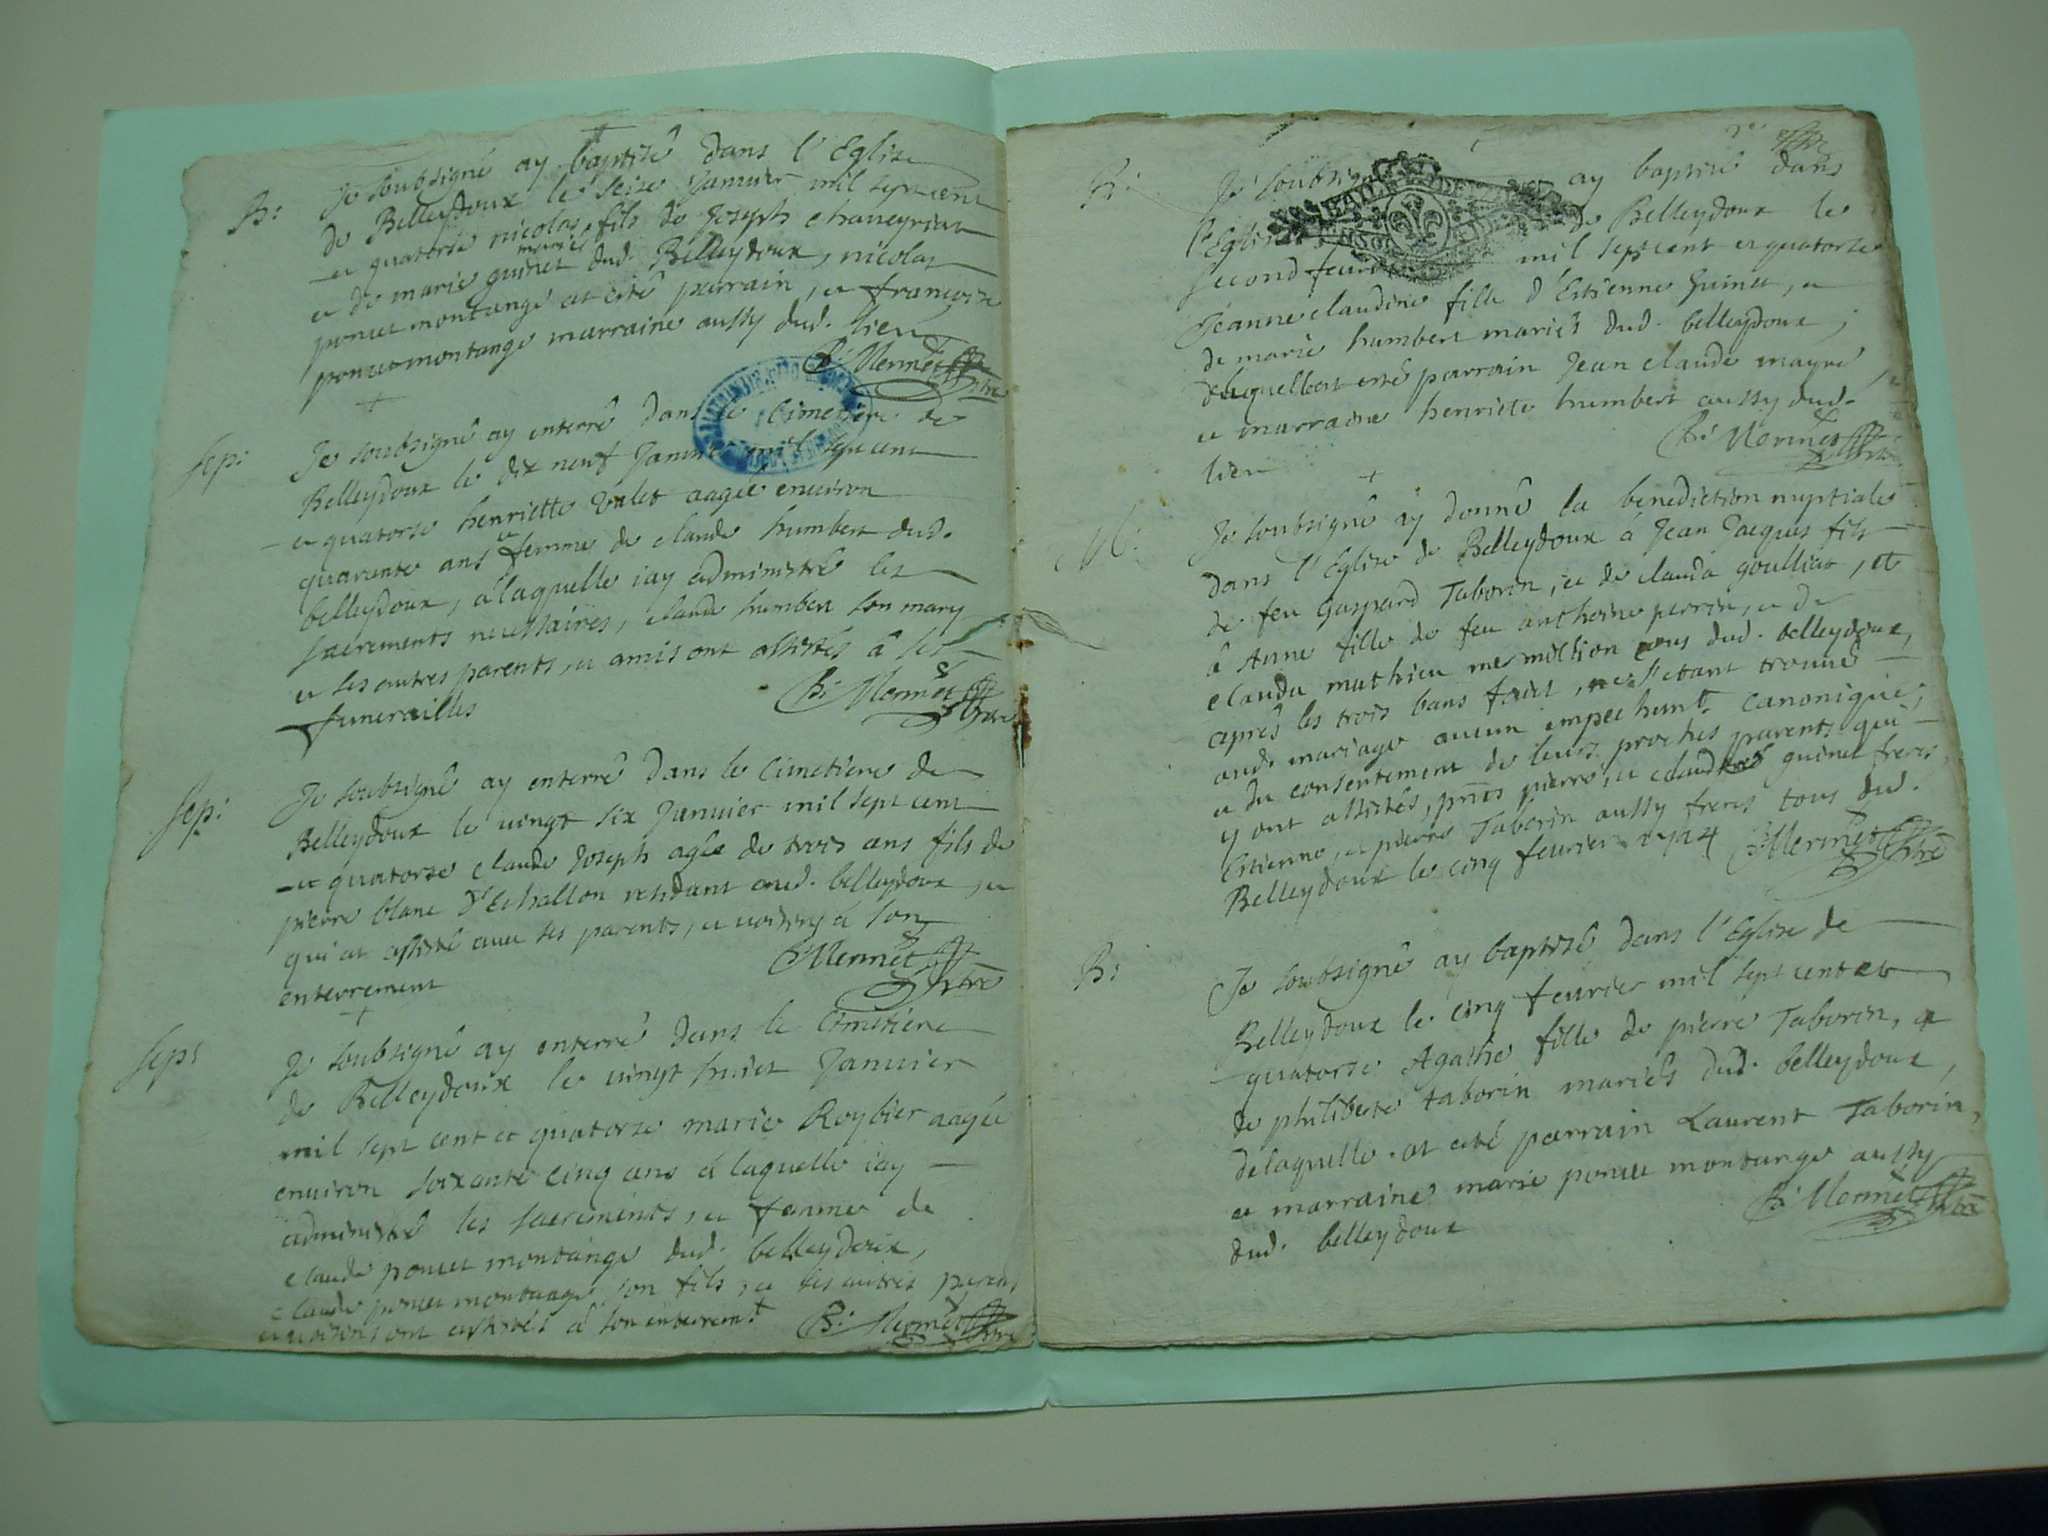 B:
Je soubsigné ay baptisé dans l'Eglise
de Belleydoux le seise Janvier mil sept cent
et quatorse nicolas fils de Joseph chaneyriat
et de marie guinet mariés dud. Belleydoux, nicolas
poncet montange at esté parrain, et françoise
poncet montange marraine aussy dud. lieu
B: Mermet Ptre
Sep:
Je soubsigné ay enterré dans le Cimetiere de
Belleydoux le dix neuf Janvier mil sept cent
et quatorse henriette Valet aagée environ
quarente ans et femme de claude humbert dud.
belleydoux, a laquelle iay administré les
sacrements necessaires, claude humbert son mary
et les autres parents, et amis ont assistés à ses
funerailles
B: Mermet Ptre
Sep:
Je soubsigné ay enterré dans le Cimetiere de
Belleydoux le vingt six Janvier mil sept cent
et quatorse claude Joseph agée de trois ans fils de
pierre blanc d'Echallon residant aud. belleydoux, et
qui at assisté avec ses parents, et voisins à son
enterrement
B: Mermet Ptre
Sep:
Je soubsigné ay enterré dans le Cimetiere
de Belleydoux le vingt huict Janvier
mil sept cent et quatorse marie Roybier aagée
environ soixante cinq ans à laquelle iay
administré les sacrements, et femme de
claude poncet montange dud. belleydoux,
claude poncet montange son fils, et les autres parens
et voisins ont assistés à son enterremt
B: Mermet Ptre
B:
Je soubsigné ay baptisé dans
l'Eglise de Belleydoux le
second feuvrier mil sept cent et quatorse
Jeanne claudine fille d'Estienne Guinet, et
de marie humbert mariés dud. belleydoux,
de laquelle at esté parrain Jean claude mayre
et marraine henriete humbert aussy dud.
lieu
B: Mermet Ptre
M:
Je soubsigné ay donné la benediction nuptiale
dans l'Eglise de Belleydoux à Jean Jacques fils
de feu Gaspard Taborin, et de clauda goulliat, et
à Anne fille de feu anthoine perrin, et de
clauda mathieu mermillion tous dud. belleydoux,
après les trois bans faict, ne s'etant trouvé
aud. mariage aucun empechemt. canonique,
et du consentement de leurs proches parents qui
y ont assistés, pnts pierre, et claude guinet freres,
Estienne, et pierre Taborin aussy freres tous dud.
Belleydoux le cinq feuvrier 1714 B: Mermet Ptre
B:
Je soubsigné ay baptisé dans l'Eglise de
Belleydoux le cinq feuvrier mil sept cent et
quatorse Agathe fille de pierre Taborin, et
de philiberte taborin mariés dud. belleydoux,
de laquelle at esté parrain Laurent Taborin,
et marraine marie poncet montange aussy
dud. belleydoux
B: Mermet Ptre